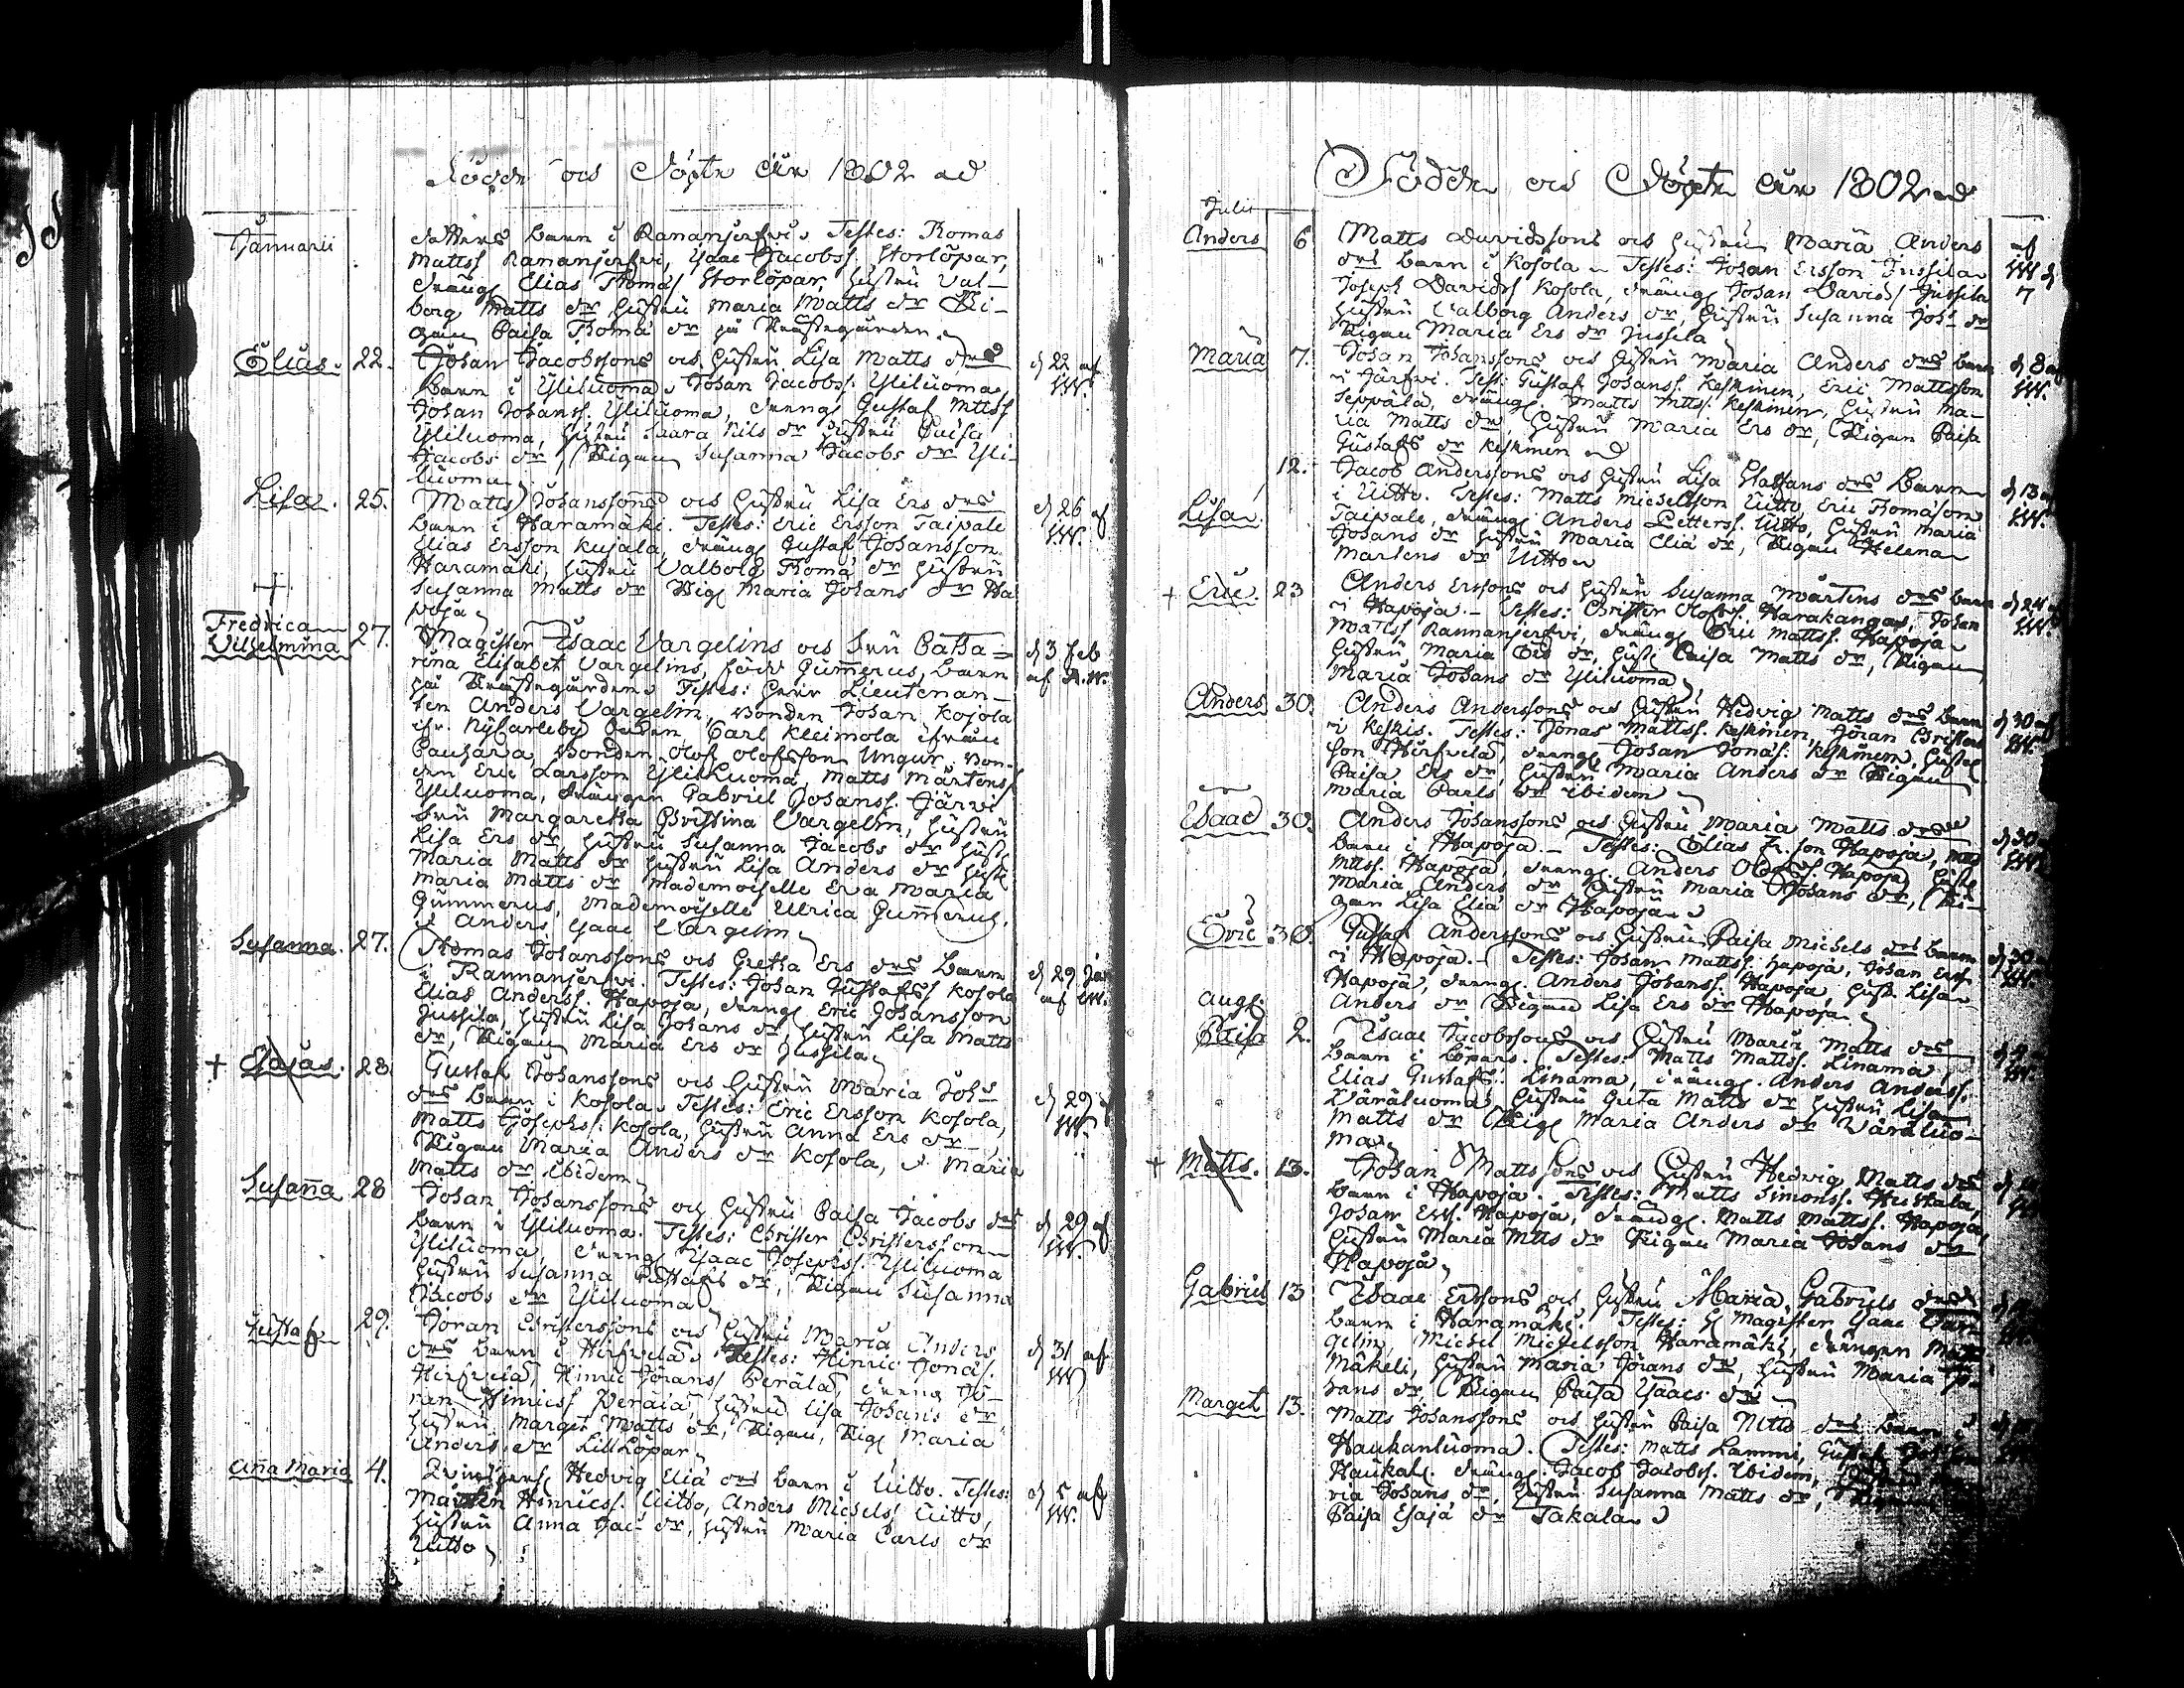 Födde och Döpte åhr 1802
Januarii
dotters barn i Rananjerfvi. Testes: Thomas
Mattss Rananjerfvi, Isaac Jacobss. Storlöpar,
dräng Elias Thomæ Storlöpar, hustru Val-
borg Matts dr hustru Maria Matts dr Pi-
gan Caisa Thomæ dr på Prästegården.
Elias. 22. Johan Jacobssons och hustru Lisa Matts drs d 22 af
barn i Yliluoma. Johan Jacobss. Yliluoma, W.
Johan Johanss. Yliluoma, dreng Gustaf Mttss
Yliluoma, hustru Saara Nils dr hustru Caisa
Jacobs dr, Pigan Susanna Jacobs dr Yli-
luoma
Lisa. 25. Matts Johanssons och hustru Lisa Ers drs d 26 af
barn i Haramäki. Testes: Eric Ersson Taipale W.
Elias Ersson Kujala, dräng Gustaf Johansson
Haramäki, hustru Valborg Thomæ dr hustru
Susanna Matts dr Pig Maria Johans dr Ha
poja
Fredrica
Vilhelmina 27. Magister Isaac Vargelins och Fru Catha- d 3 Feb
rina Elisabet Vargelins, född Gummerus, barn
på Prästegården. Testes: Herr Lieutenan-
ten Anders Vargelin, Bonden Johan Kojola
ifr. Nycarleby Socken, Carl Kleimola ifrån
Cauhava, Bonden Olof Olofsson Ungur. Bon-
den Eric Larsson Yliluoma, Matts Mårtens
Yliluoma, drängen Gabriel Johanss. Järvi
Fru Margaretha Christina Vargelin, hustru
Lisa Ers dr, hustru Susanna Jacobs dr hust
Maria Matts dr hustru Lisa Anders dr hust
Maria Matts dr Mademoiselle Eva Maria
Gummerus, Mademoiselle Ulrica Gummerus,
Anders Isaac Vargelin
Susanna. 27. Thomas Johanssons och Gretha Ers drs barn d 29 Jan
i Rannanjerfvi. Testes: Johan Gustafss Kosola
Elias Anderss. Hapoja, dreng Eric Johansson
Jussila, hustru Lisa Johans dr, hustru Lisa Matts
dr, Pigan Maria Ers dr Jussila
+ Esajas. 28 Gustaf Johanssons och hustru Maria Johs
drs barn i Kosola. Testes: Eric Ersson Kosola, d 29
Matts Josephss. Kosola, hustru Anna Ers dr, W.
Pigan Maria Anders dr Kosola, Maria
Matts dr ibidem
Susaña 28 Johan Johanssons och hustru Caisa Jacobs drs d 29 af
barn i Yliluoma. Testes: Christer Christersson W.
Yliluoma, dreng Isaac Josephss. Yliluoma
hustru Susanna Gustafs dr, Pigan Susanna
Jacobs dr Yliluoma
Gustaf 29. Jöran Christerssons och hustru Maria Anders
drs barn i Hirfvelä. Testes: Hinric Jonæs. d 31 af
Hirfvelä, Hinric Jörans Perälä, dreng Jö- W
ran Hinricss Peräiä hustru Lisa Johans dr
hustru Marget Matts dr, Pigan, Pig Maria
Anders dr LillLöpar
Aña Maria 4. Hedvig Eliæ drs barn i Uitto. Testes: d 5 af
Mårten Hinricss. Uitto, Anders Michels Uitto, W.
hustru Anna Jac. dr, hustru Maria Carls dr
Uitto
Födde och Döpte åhr 1802
Julii
Anders 6 Matts Davidssons och hustru Maria Anders af
drs barn i Kosola. Testes: Johan Ersson Jussila W d
Joseph Davids Kosola, dräng Johan Davids Jussila 7
hustru Valborg Anders dr, hustru Susanna Joh. dr
Pigan Maria Ers dr Jussila
Maria 7. Johan Johanssons och hustru Maria Anders drs barn d 8 af
i Järfvi. Test: Gustaf Johanss. Keskinen, Eric Mattsson W.
Seppälä, dräng Matts Mtts. Keskinen, hustru Ma-
ria Matts dr, hustru Maria Ers dr, Pigan Caisa
Gustafs dr Keskinen
Lisa 12. Jacob Anderssons och hustru Lisa Stephans drs barn d 13 af
i Uitto. Testes: Matts Michelsson Uitto, Eric Thomasson W.
Taipale, dräng Anders Petterss. Uitto, hustru Maria
Johans dr hustru Maria Eliæ dr, Pigan Helena
Martens dr Uitto
+ Eric 23 Anders Erssons och hustru Susanna Mårtens drs barn d 24
i Hapoja. Testes: Christer Olofss. Harakangas, Johan W.
Mattss Rannanjerfvi, dräng Eric Mattss. Hapoja
hustru Maria Ers dr, hust Caisa Matts dr, Pigan
Maria Johans dr Yliluoma
Anders 30. Anders Anderssons och hustru Hedvig Matts drs barn d 30 af
i Keskis. Testes: Jonas Mattss. Keskinen, Jöran Christers W.
son Hirfvelä, dreng Johan Jonæs. Keskinen, hustru
Caisa Ers dr, hustru Maria Anders dr Pigan
Maria Carls dr ibidem
Isaac 30. Anders Johanssons och hustru Maria Matts drs d 30
barn i Hapoja. Testes: Elias Jr. son Hapoja, Mtts W.
Mttss. Hapoja, dreng Anders Hapoja, hust
Maria Anders dr hustru Maria Johans dr, Pi-
gan Lisa Eliæ dr Hapoja
Eric 30. Gustaf Anderssons och hustru Caisa Michels drs barn d 30
i Hapoja. Testes: Johan Mattss. Hapoja, Johan Erss. W.
Hapoja, dreng Anders Johanss. Hapoja, hust. Lisa
Anders dr Pigan Lisa Ers dr Hapoja
Aug.
Caisa 2. Isaac Jacobssons och hustru Maria Matts drs
barn i Löpars. Testes: Matts Mattss. Linama, W.
Elias Gustafs. Linama, dräng Anders Anderss.
Väräluoma, hustru Greta Matts dr hustru Lisa
Matts dr Pig Maria Anders dr Väräluo-
ma
+ Matts. 13. Johan Matts sons och hustru Hedvig Matts drs
barn i Hapoja. Testes: Matts Simonss. Heikkala,
Johan Erss. Hapoja, dräng Matts Mattss. Hapoja,
hustru Maria Mtts dr Pigan Maria Johans dr
Hapoja
Gabriel 13 Isaac Erssons och hustru Maria Gabriels drs
barn i Haramäki. Testes: H Magister Isaac Var-
gelin, Michel Michelsson Haramäki, drängen
Mäkeli, hustru Maria Jörans dr, hustru Maria Jo-
hans dr, Pigan Caisa Isaacs dr
Marget 13. Matts Johanssons och hustru Caisa Mtts drs barn i
Haukanluoma. Testes: Matts Lammi, Gustaf
Haukal. dräng Jacob Jacobss. Ibidem,
ria Johans dr, hustru Susanna Matts dr,
Caisa Esajæ dr Takala